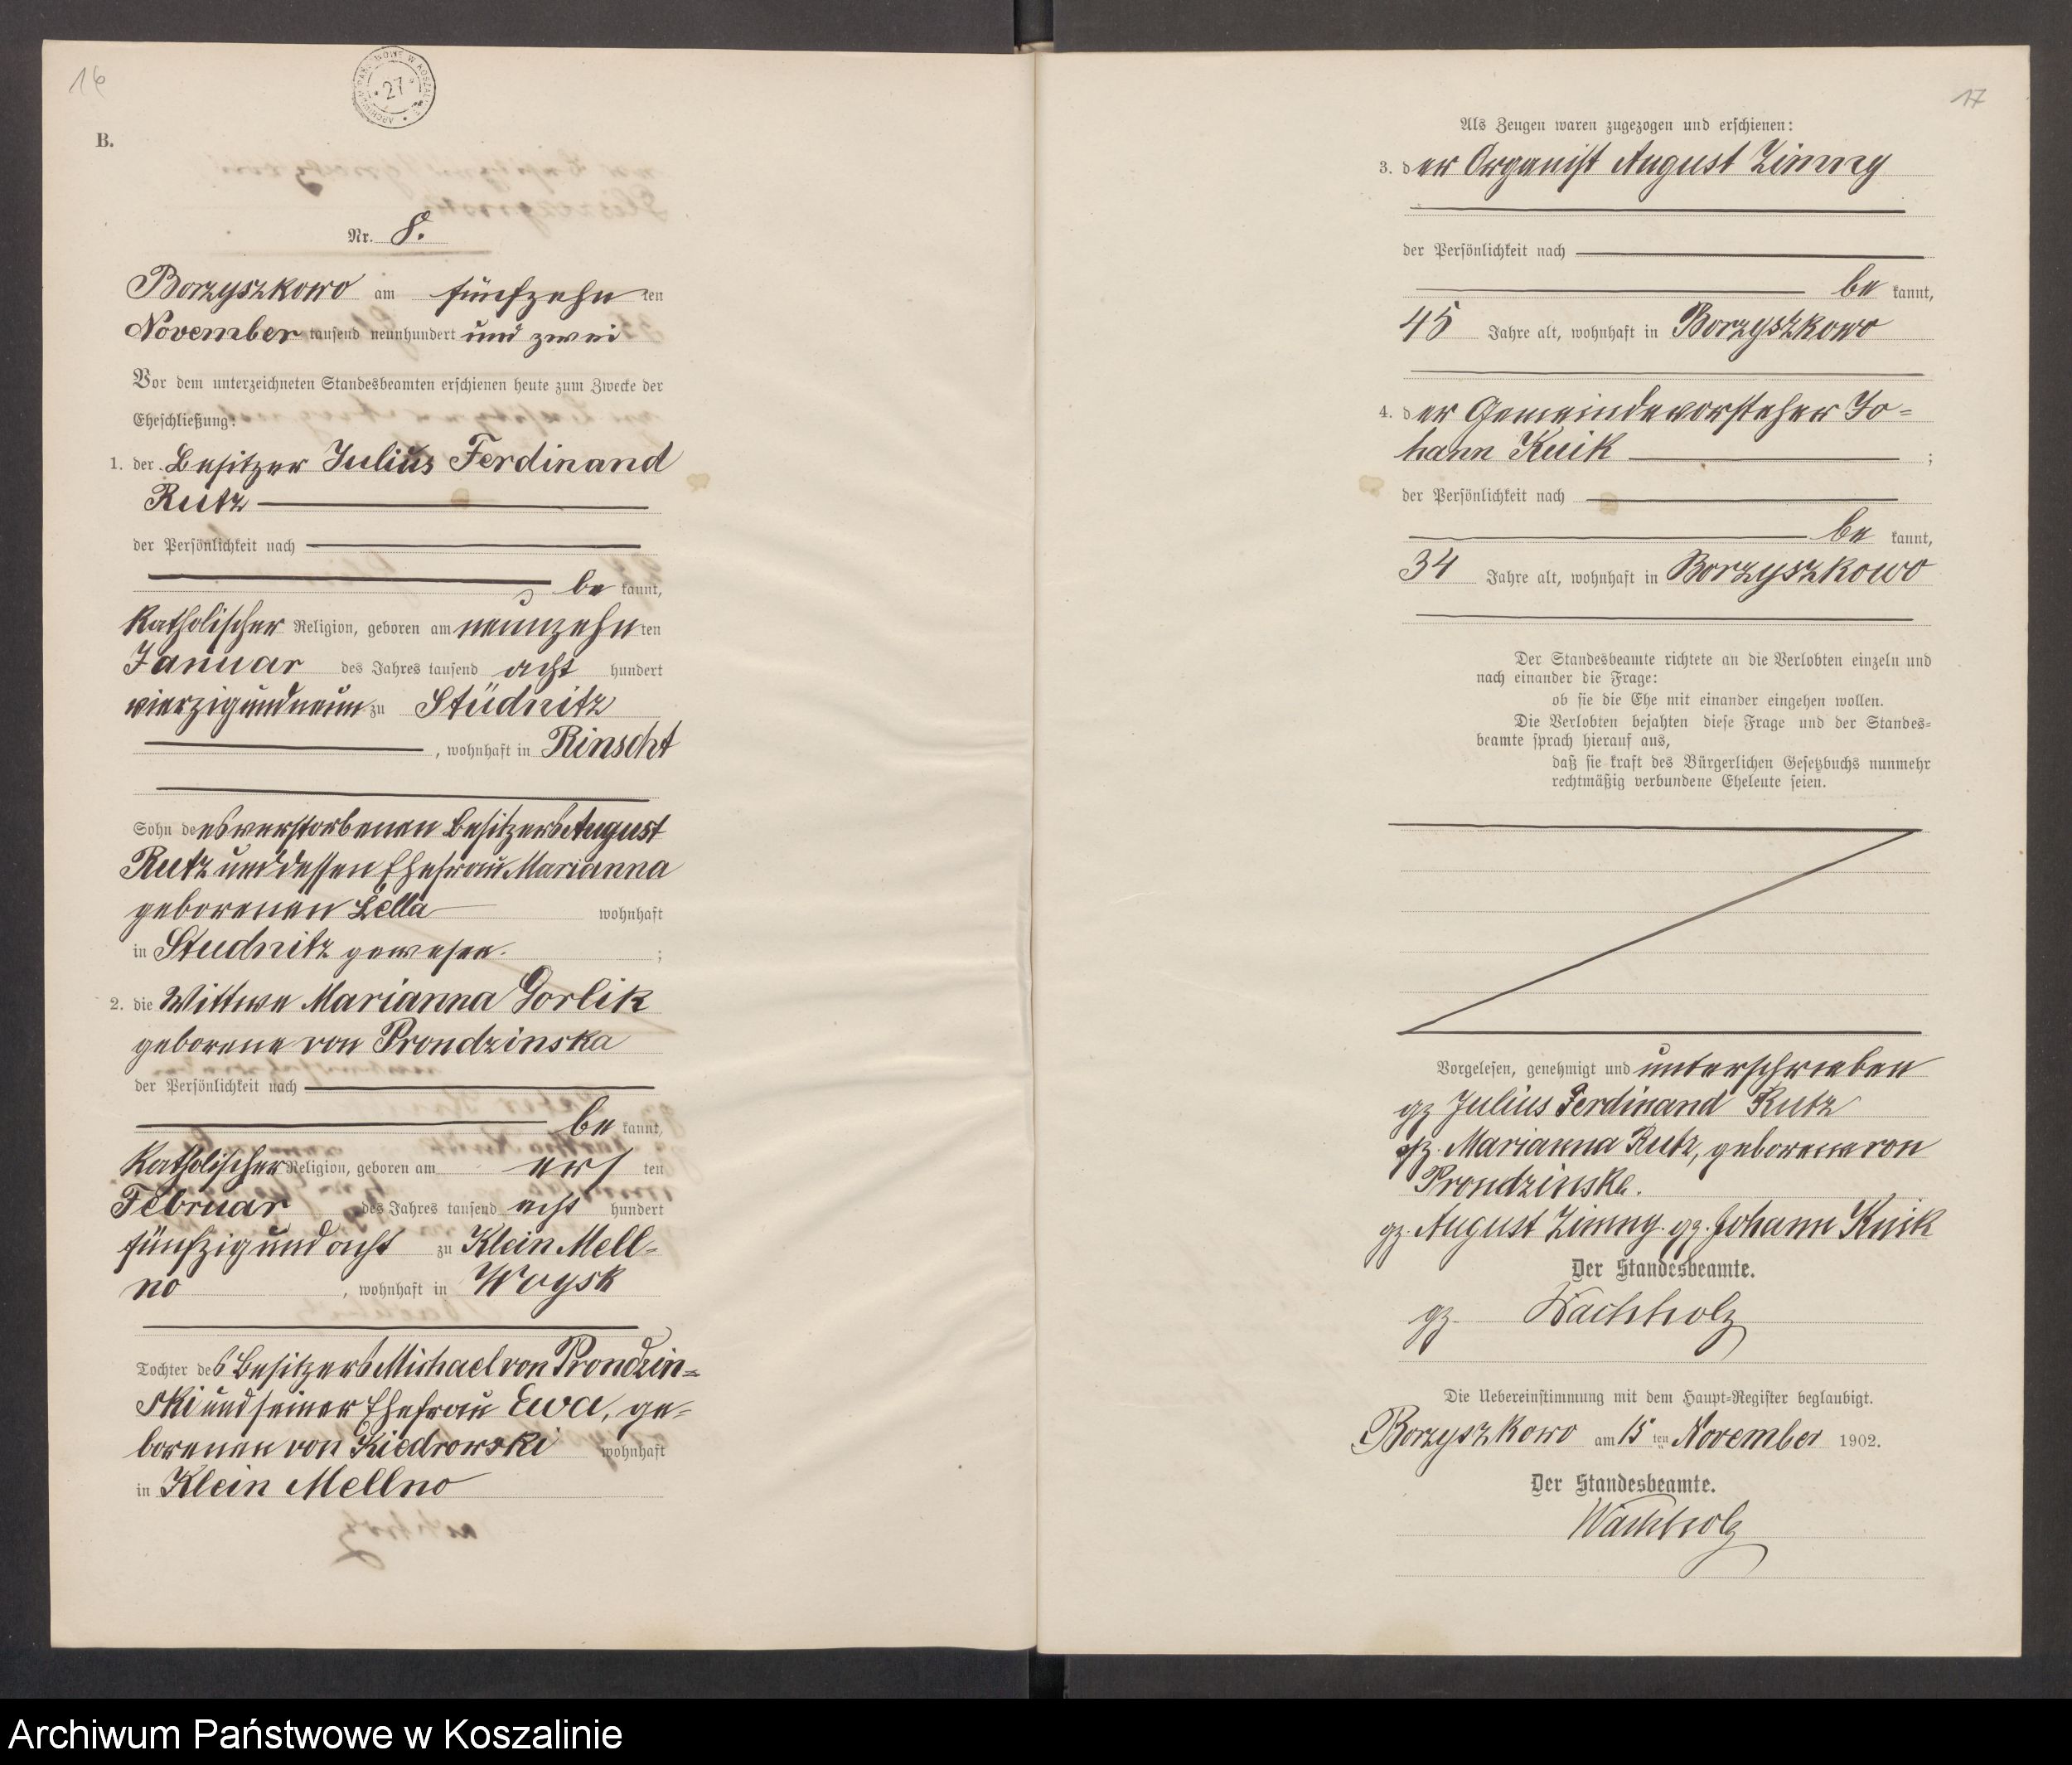 16
ARCHIWUM PAŃSTWOWE W KOSZALINIE
27
B.
Nr. 8.
Borzyszkowo am fünfzehn ten
November tausend neunhundert und zwei
Vor dem unterzeichneten Standesbeamten erschienen heute zum Zwecke der
Eheschließung:
1. der Besitzer Julius Ferdinand
Rutz
der Persönlichkeit nach
be kannt,
Katholischer Religion, geboren am neunzehn ten
Januar des Jahres tausend acht hundert
vierzig und neun zu Stüdnitz
, wohnhaft in Rinscht
Sohn de es verstorbenen Besitzers August
Rutz und dessen Ehefrau Marianna
geborenen Lella wohnhaft
in Studnitz gewesen. ;
2. die Wittwe Marianna Gorlik
geborene von Prondzinska
der Persönlichkeit nach
be kannt,
Katholischer Religion, geboren am ers ten
Februar des Jahres tausend acht hundert
fünfzig und acht zu Klein Mell-
no , wohnhaft in Woysk
Tochter des Besitzers Michael von Prondzin=
ski und seiner Ehefrau Ewa, ge=
borenen von Kiedrowski wohnhaft
in Klein Mellno
17
Als Zeugen waren zugezogen und erschienen:
3. der Organist August Zimny
der Persönlichkeit nach
be kannt,
45 Jahre alt, wohnhaft in Borzyszkowo
4. der Gemeindevorsteher Jo=
hann Kuik ;
der Persönlichkeit nach
be kannt,
34 Jahre alt, wohnhaft in Borzyszkowo
Der Standesbeamte richtete an die Verlobten einzeln und
nach einander die Frage:
ob sie die Ehe mit einander eingehen wollen.
Die Verlobten bejahten diese Frage und der Standes=
beamte sprach hierauf aus,
daß sie kraft des Bürgerlichen Gesetzbuchs nunmehr
rechtmäßig verbundene Eheleute seien.
Vorgelesen, genehmigt und unterschrieben
gz Julius Ferdinand Rutz
gz. Marianna Rutz, geborene von
Prondzinska.
gz. August Zimny. gz. Johann Kuik
Der Standesbeamte.
gz. Wachholz
Die Uebereinstimmung mit dem Haupt=Register beglaubigt.
Borzyszkowo am 15 ten November 1902.
Der Standesbeamte.
Wachholz
Archiwum Państwowe w Koszalinie